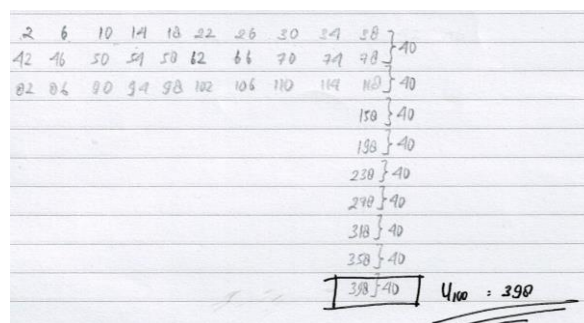 2 6 10 14 18 22 26 30 34 38 } 40
42 46 50 54 58 62 66 70 74 78
82 86 90 94 98 102 106 110 114 118 } 40
158 } 40
198 } 40
238 } 40
278 } 40
318 } 40
358 } 40
398 } 40 U100 : 398